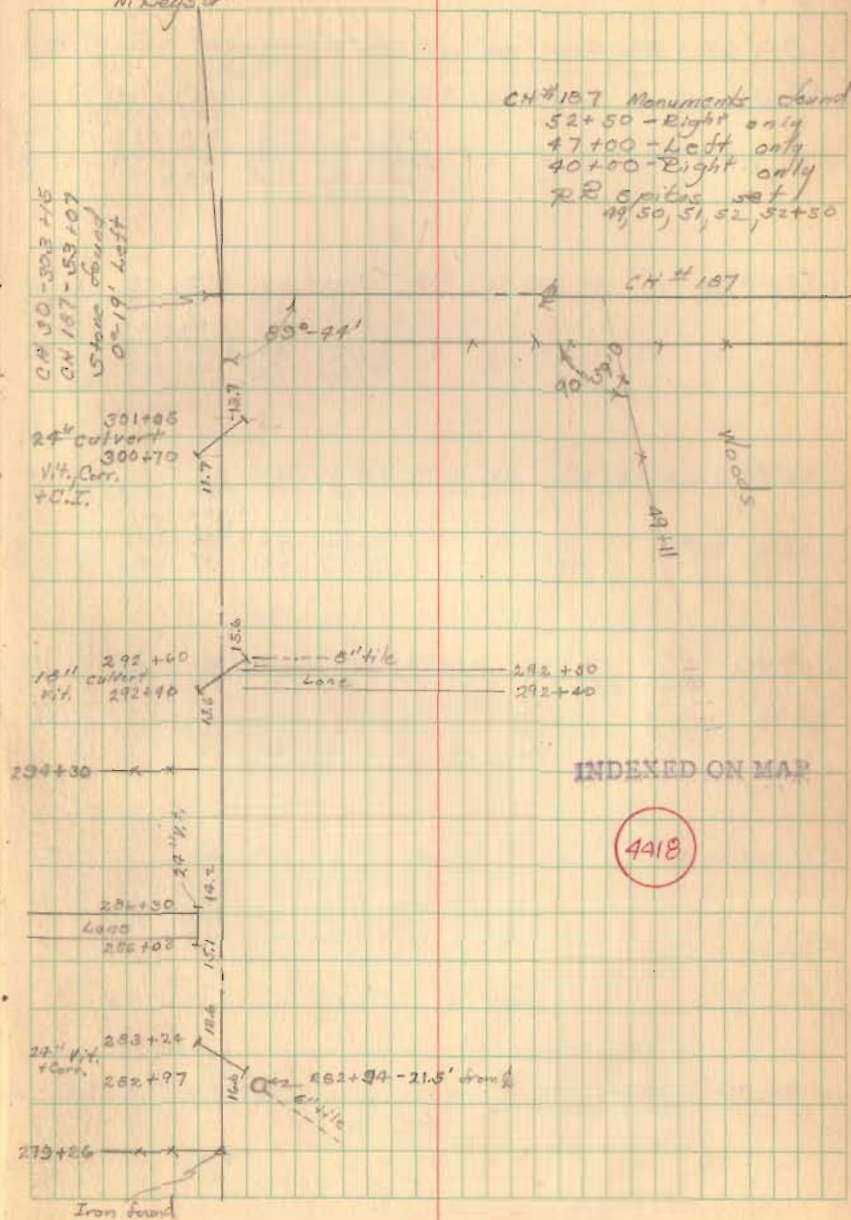 CH #187 Monuments found
52+50 - Right only
47+00 - Left only
40+00 - Right only
RR Spikes set
49, 50, 51, 52, 52+50
CH 30 - 303+15
CH 187 - 53+07
Stone found
0°-19' Left
CH #187
89°-44'
90
39.0
Woods
49+11
13.7
301+05
24" culvert
300+70
Vit., Corr.
+ C.I.
11.7
15.6
292+60
18" culvert
Vit. 292+40
8" tile
Lane
292+50
292+40
13.5
294+30
INDEXED ON MAP
4418
24" Vit.
14.2
286+30
Lane
286+08
15.1
12.6
283+24
24" Vit.
+ Corr.
282+97
16.0
282+94 - 21.5' from ℄
6" tile
279+26
Iron found